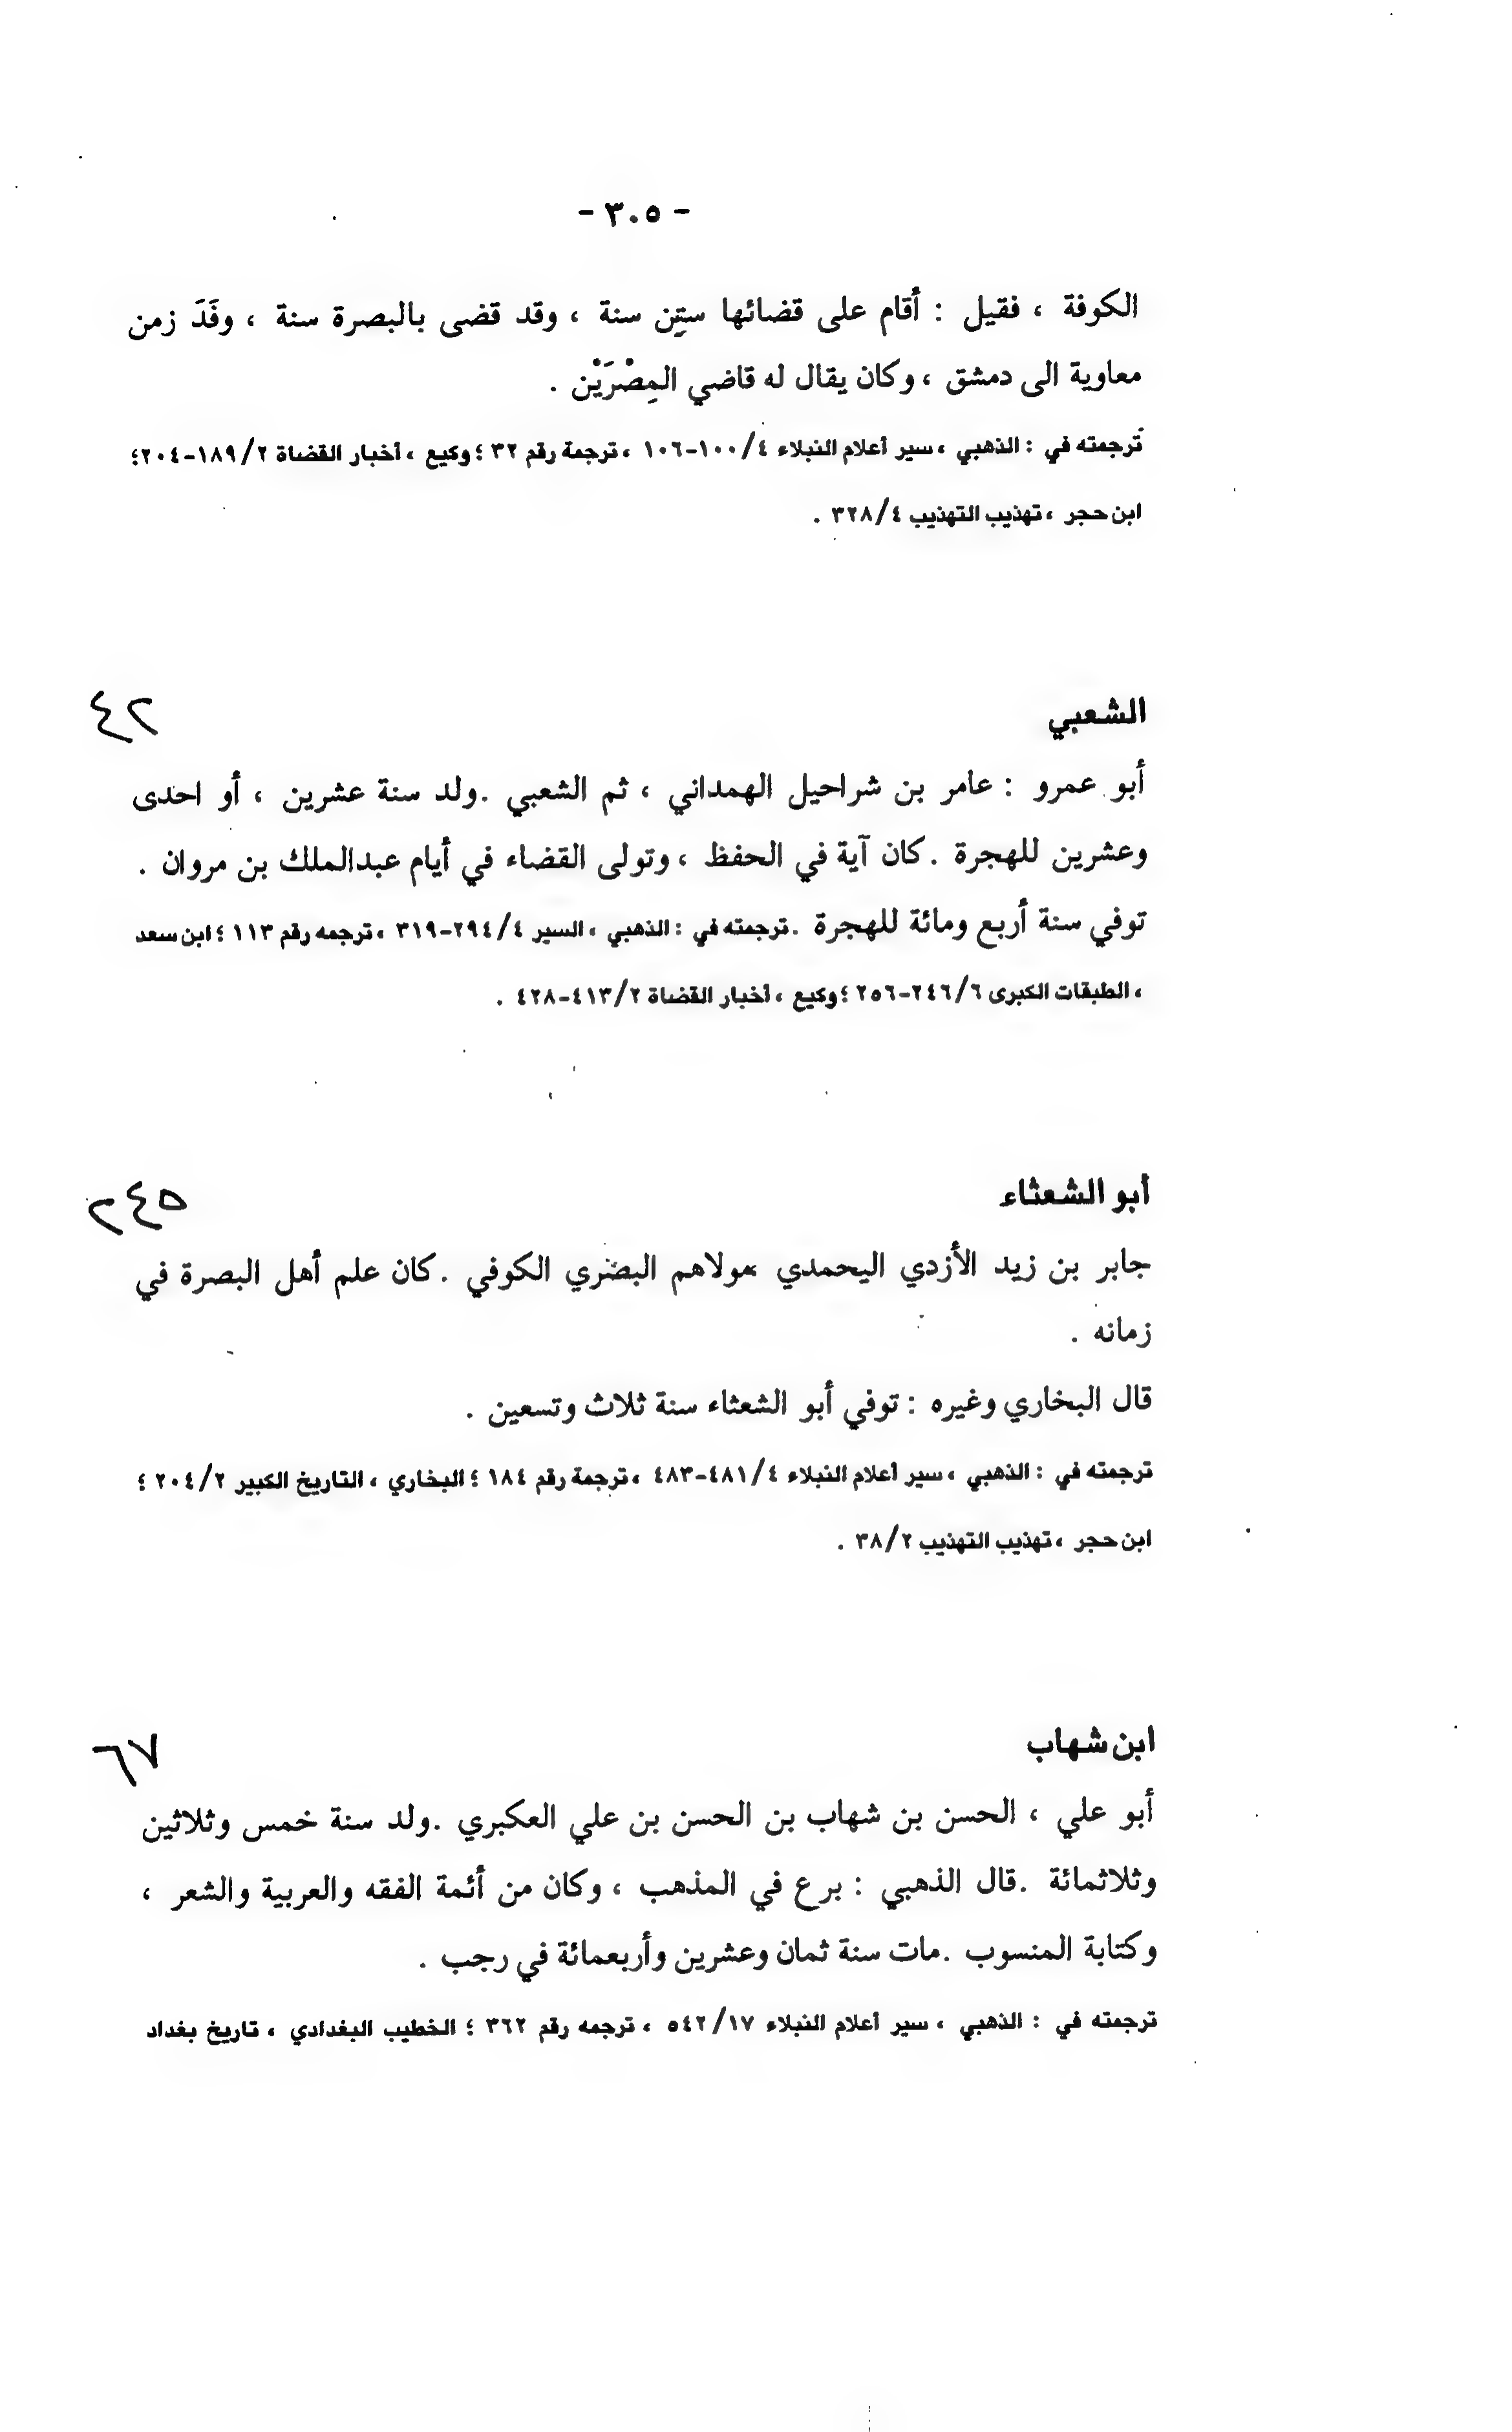 - ٣٠٥ -
الكوفة ، فقيل : أقام على قضائها ستِن سنة ، وقد قضى بالبصرة سنة ، وفَدَ زمن
معاوية الى دمشق ، وكان يقال له قاضي المِصْرَيْن .
ترجمته في : الذهبي ، سير أعلام النبلاء ٤/١٠٠-١٠٦ ، ترجمة رقم ٣٢ ؛ وكيع ، أخبار القضاة ٢/١٨٩-٢٠٤؛
ابن حجر ، تهذيب التهذيب ٤/٣٢٨ .
الشعبي ٤٢
أبو عمرو : عامر بن شراحيل الهمداني ، ثم الشعبي .ولد سنة عشرين ، أو احدى
وعشرين للهجرة .كان آية في الحفظ ، وتولى القضاء في أيام عبدالملك بن مروان .
توفي سنة أربع ومائة للهجرة .ترجمته في : الذهبي ، السير ٤/٢٩٤-٣١٩ ، ترجمه رقم ١١٣ ؛ ابن سعد
، الطبقات الكبرى ٦/٢٤٦-٢٥٦ ؛ وكيع ، أخبار القضاة ٢/٤١٣-٤٢٨ .
أبو الشعثاء ٢٤٥
جابر بن زيد الأزدي اليحمدي مولاهم البصري الكوفي .كان علم أهل البصرة في
زمانه .
قال البخاري وغيره : توفي أبو الشعثاء سنة ثلاث وتسعين .
ترجمته في : الذهبي ، سير أعلام النبلاء ٤/٤٨١-٤٨٣ ، ترجمة رقم ١٨٤ ؛ البخاري ، التاريخ الكبير ٢/٢٠٤ ؛
ابن حجر ، تهذيب التهذيب ٢/٣٨ .
ابن شهاب ٦٧
أبو علي ، الحسن بن شهاب بن الحسن بن علي العكبري .ولد سنة خمس وثلاثين
وثلاثمائة .قال الذهبي : برع في المذهب ، وكان من أئمة الفقه والعربية والشعر ،
وكتابة المنسوب .مات سنة ثمان وعشرين وأربعمائة في رجب .
ترجمته في : الذهبي ، سير أعلام النبلاء ١٧/٥٤٢ ، ترجمه رقم ٣٦٢ ؛ الخطيب البغدادي ، تاريخ بغداد